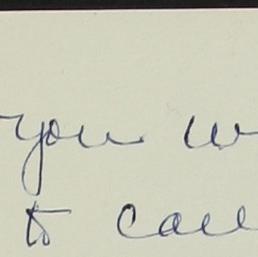 you w
to call